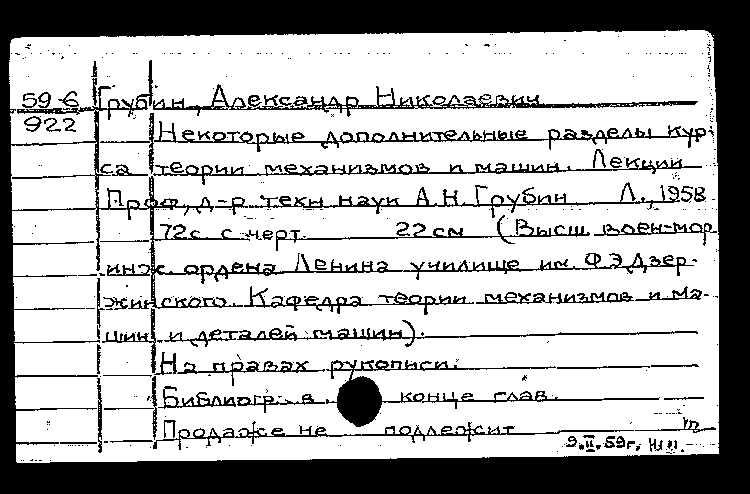 59-6 Грубин, Александр Николаевич
922 Некоторые дополнительные разделы кур-
са теории механизмов и машин. Лекции
Проф., д-р техн наук А.Н. Грубин Л., 1958
72с. с черт. 22 см (Высш. воен-мор
инж. ордена Ленина училище им. Ф.Э Дзер-
жинского. Кафедра теории механизмов и ма-
шин и деталей машин).
На правах рукописи.
Библиогр. в конце глав.
Продаже не подлежит
9.II.59г.